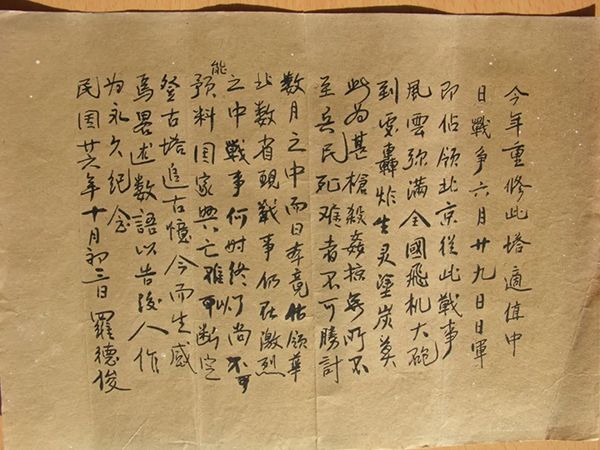 今年重修此塔適值中
日戰争六月廿九日日軍
即佔領北京從此戰事
風雲弥满全國飛机大砲
到處轟炸生灵塗炭莫
此为甚槍殺姦掠無所不
至兵民死难者不可勝計
数月之中而日本竟佔領華
北数省現戰事仍在激烈
之中戰事何时终尚不可
能預料國家興亡难断定
登古塔追古憶今而生感
焉畧述数語以告後人作
为永久纪念
民国廿六年十月初三日羅德俊